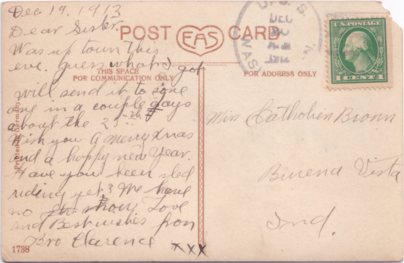 Dec 19, 1913
Dear Sister
Was up town this
eve. guess what I got
will send it to some
one in a couple days
about the 2
Wish you a Merry Xmas
and a happy new Year.
Have you been sled
riding yet? We have
no Love
and Best wishes from
Bro Clarence
XXX
1788
POST CARD
EAS
THIS SPACE
FOR COMMUNICATION ONLY
FOR ADDRESS ONLY
DEC
U.S. POSTAGE
1 CENT 1
Miss Brown
Buena Vista
Ind.